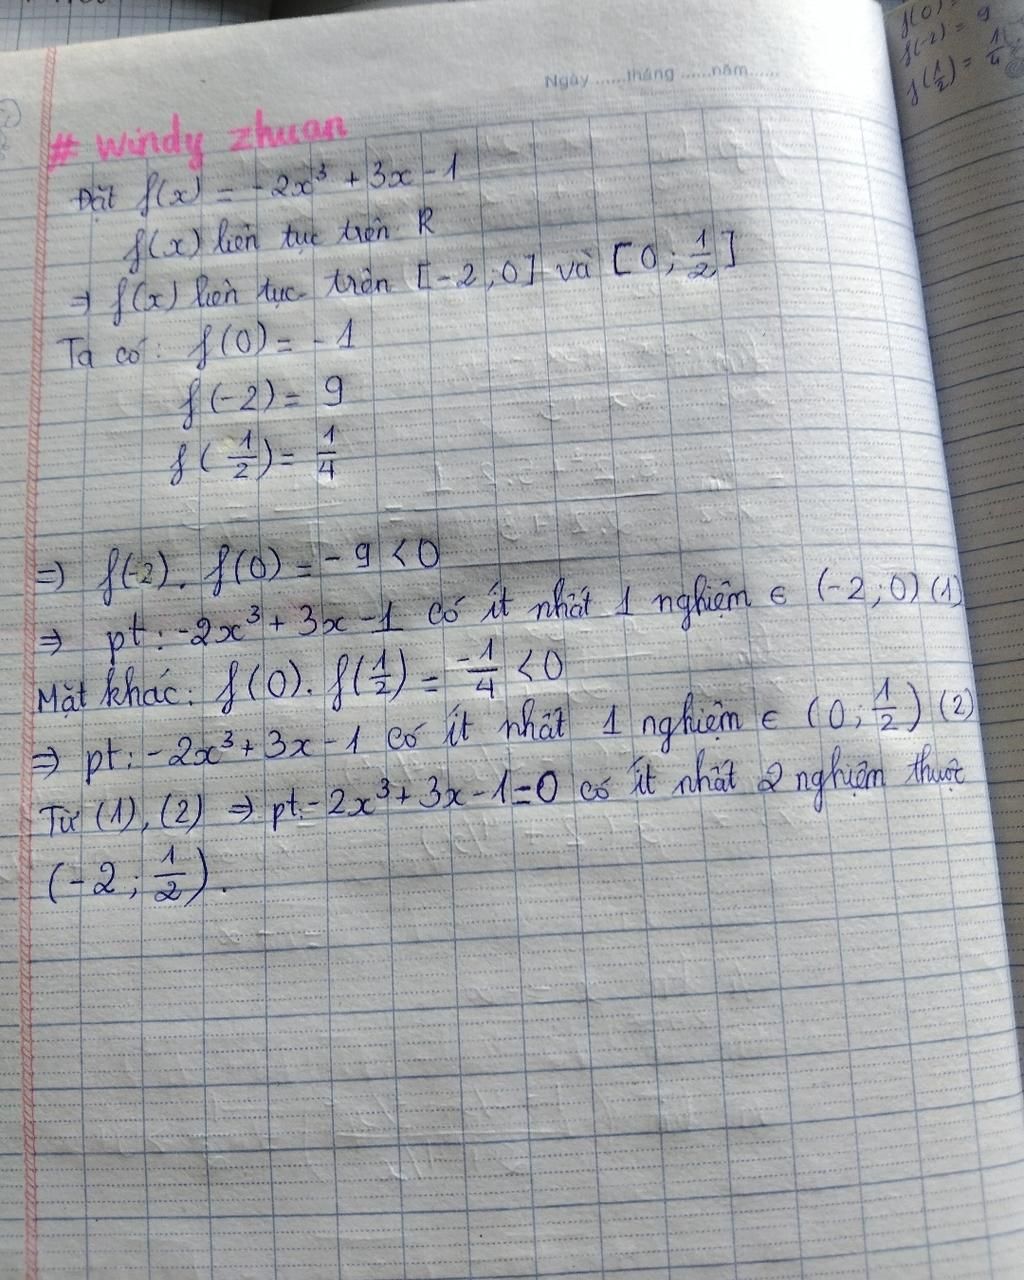 Ngày ......tháng ......năm......
# windy zhuan
Đặt f(x) = -2x³ + 3x - 1
f(x) liên tục trên R
⇒ f(x) liên tục trên [-2;0] và [0; 1/2]
Ta có: f(0) = -1
f(-2) = 9
f(1/2) = 1/4
⇒ f(-2). f(0) = -9 < 0
⇒ pt: -2x³ + 3x - 1 có ít nhất 1 nghiệm ∈ (-2;0) (1)
Mặt khác: f(0). f(1/2) = -1/4 < 0
⇒ pt: -2x³ + 3x - 1 có ít nhất 1 nghiệm ∈ (0; 1/2) (2)
Từ (1), (2) ⇒ pt: -2x³ + 3x - 1 = 0 có ít nhất 2 nghiệm thuộc
(-2; 1/2).
f(0) =
f(-2) = 9
f(1/2) = 1/4